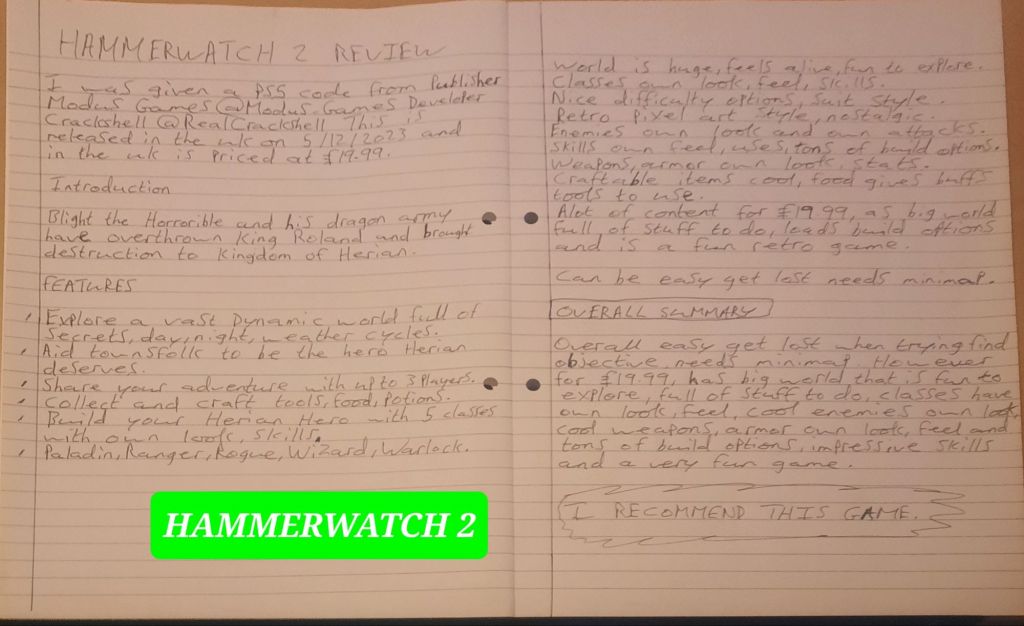 HAMMERWATCH 2 REVIEW
I was given a PS5 code from Publisher
Modus Games @Modus_Games Developer
Crackshell @RealCrackshell This is
released in the uk on 5/12/2023 and
in the uk is priced at £19.99.
Introduction
Blight the Horrorible and his dragon army
have overthrown King Roland and brought
destruction to Kingdom of Herian.
FEATURES
Explore a vast Dynamic world full of
secrets, day, night, weather cycles.
Aid townsfolk to be the hero Herian
deserves.
Share your adventure with up to 3 players.
Collect and craft tools, food, potions.
Build your Herian Hero with 5 classes
with own look, skills.
Paladin, Ranger, Rogue, Wizard, Warlock.
HAMMERWATCH 2
World is huge, feels alive, fun to explore.
Classes own look, feel, skills.
Nice difficulty options, suit style.
Retro Pixel art style, nostalgic.
Enemies own look and own attacks.
Skills own feel, uses, tons of build options.
Weapons, armor own look, stats.
Craftable items cool, food gives buffs
tools to use.
Alot of content for £19.99, as big world
full of stuff to do, loads build options
and is a fun retro game.
Can be easy get lost needs minimap.
OVERALL SUMMARY
Overall easy get lost when trying find
objective, needs minimap However
for £19.99, has big world that is fun to
explore, full of stuff to do, classes have
own look, feel, cool enemies own look,
cool weapons, armor own look, feel and
tons of build options, impressive skills
and a very fun game.
I RECOMMEND THIS GAME.